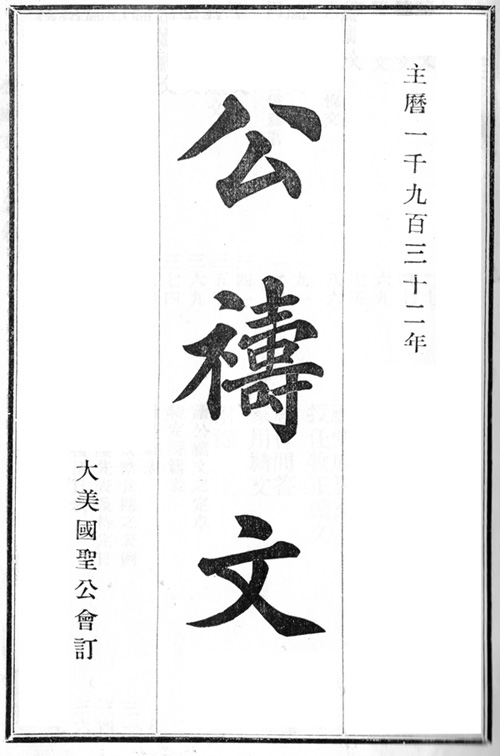 主曆一千九百三十二年
公禱文
大美國聖公會訂